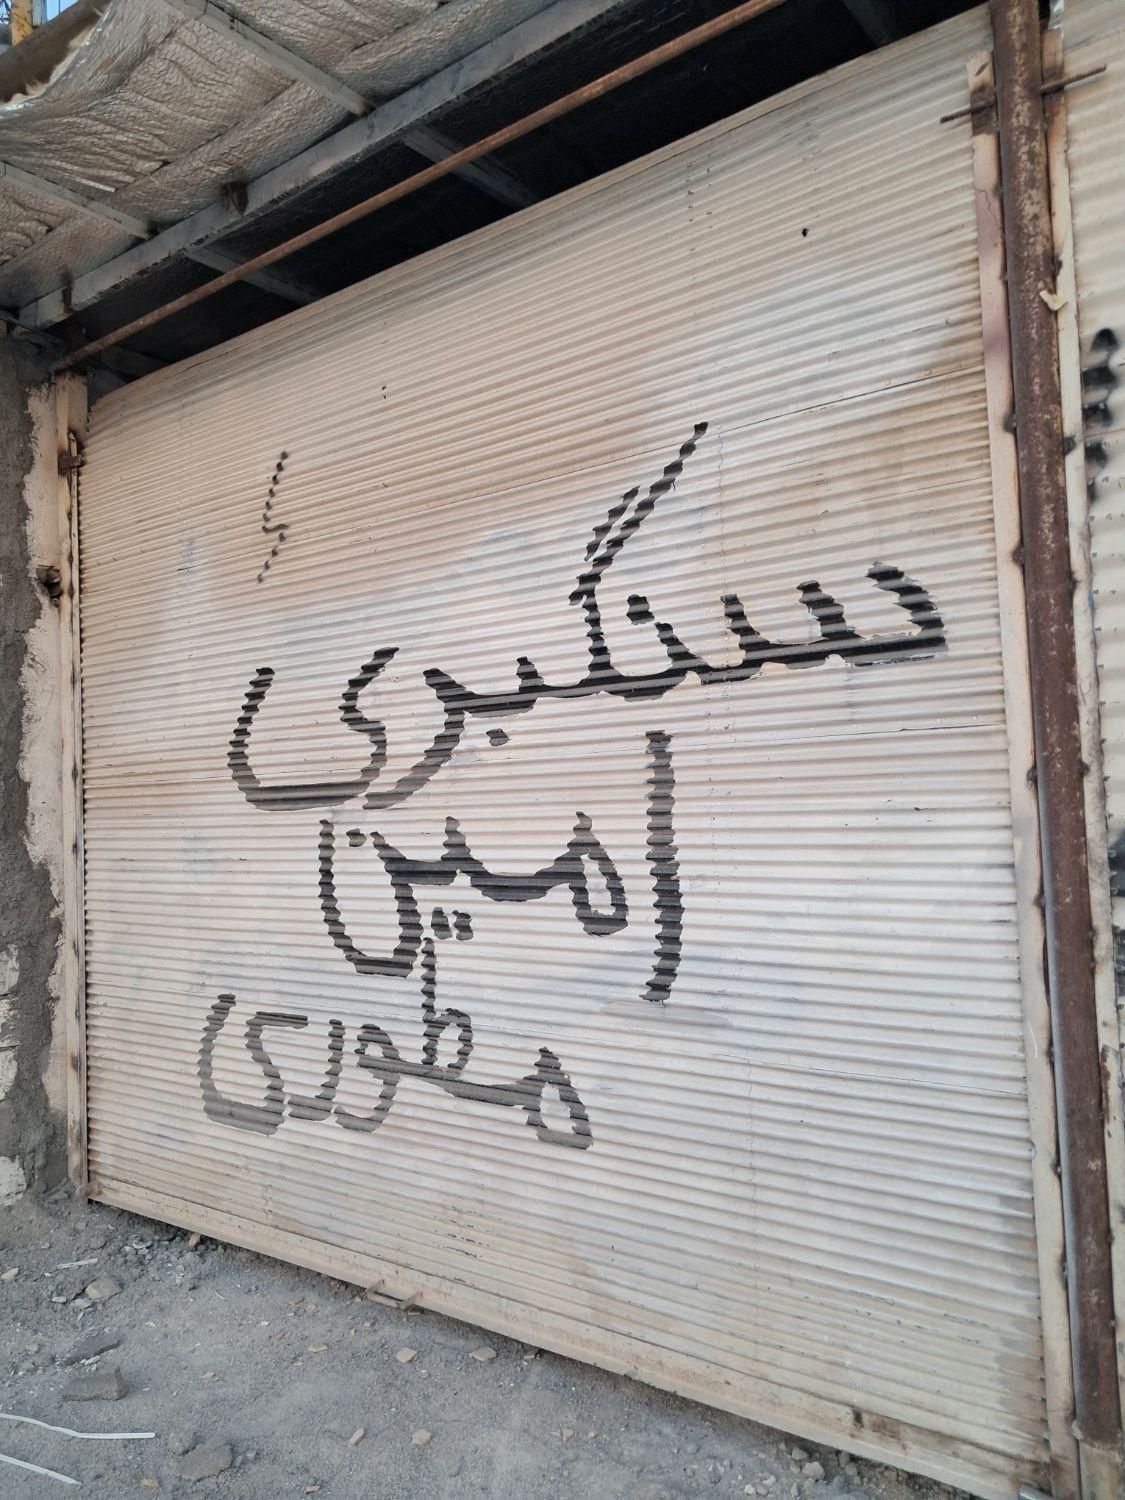 سنگبری
امین
مطوری